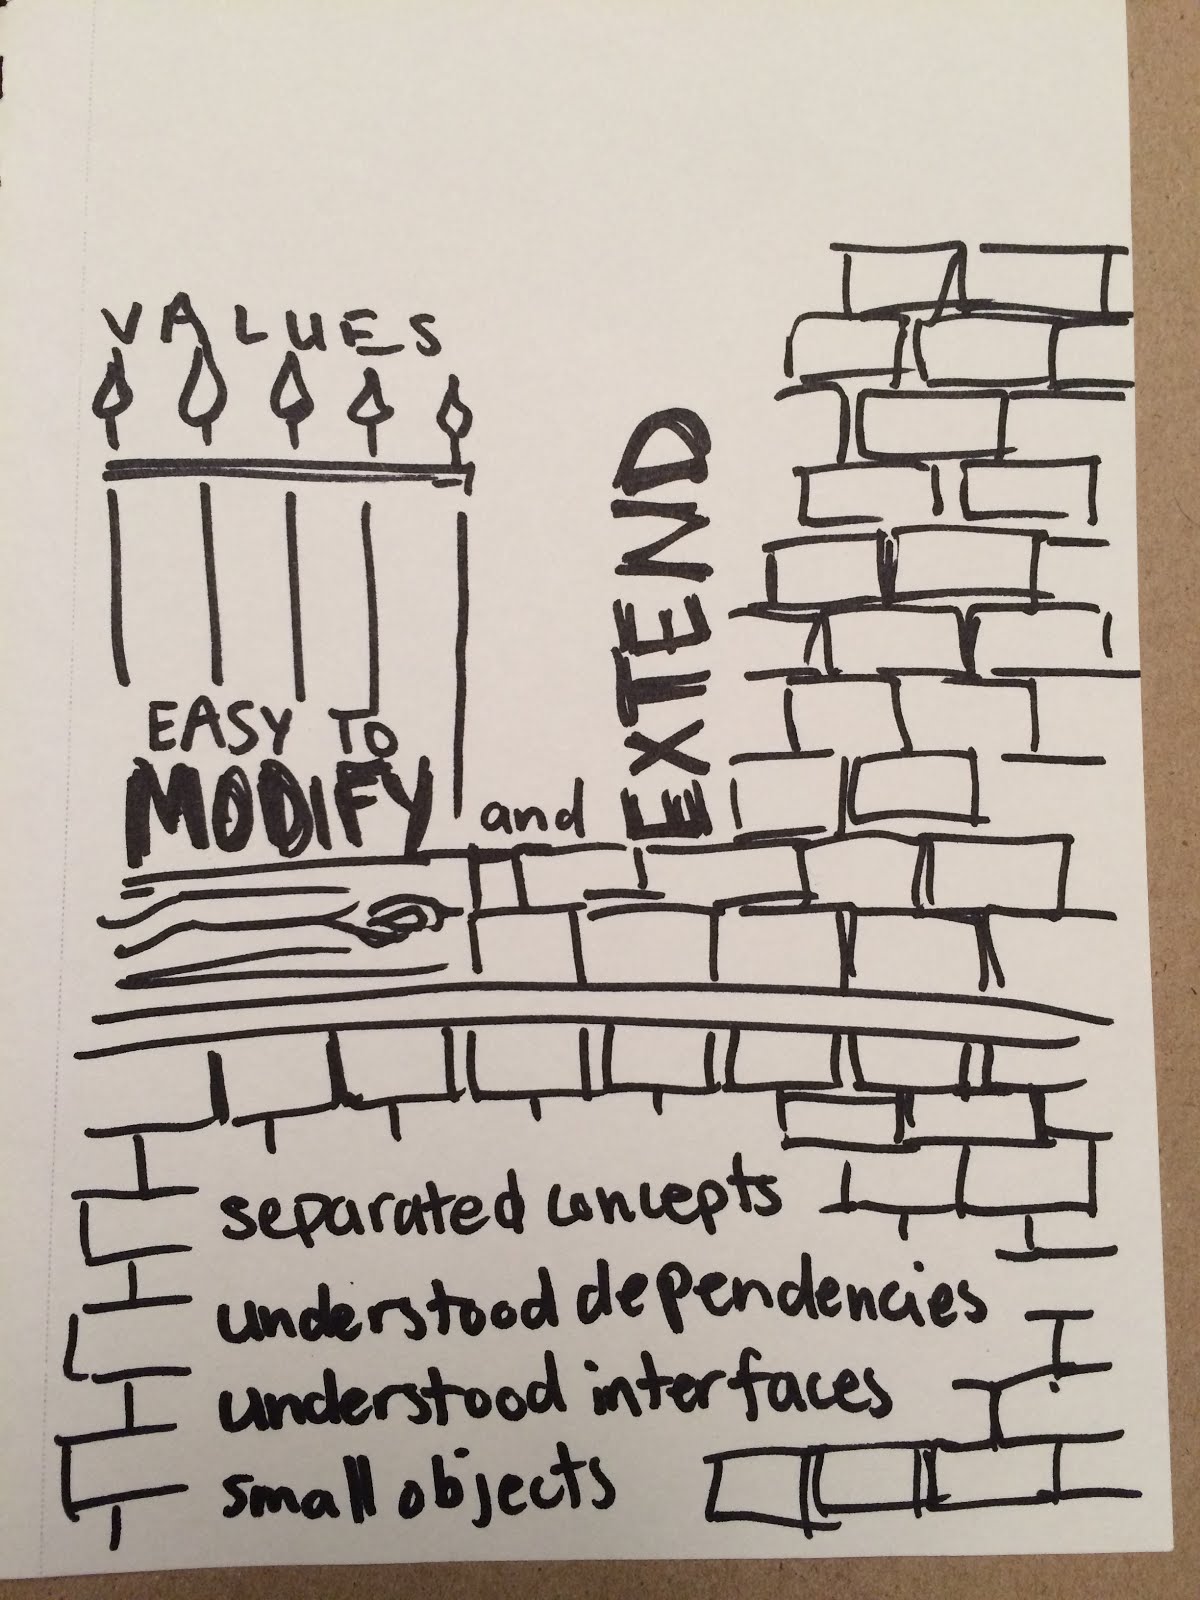 VALUES
EASY TO
MODIFY and EXTEND
separated concepts
understood dependencies
understood interfaces
small objects